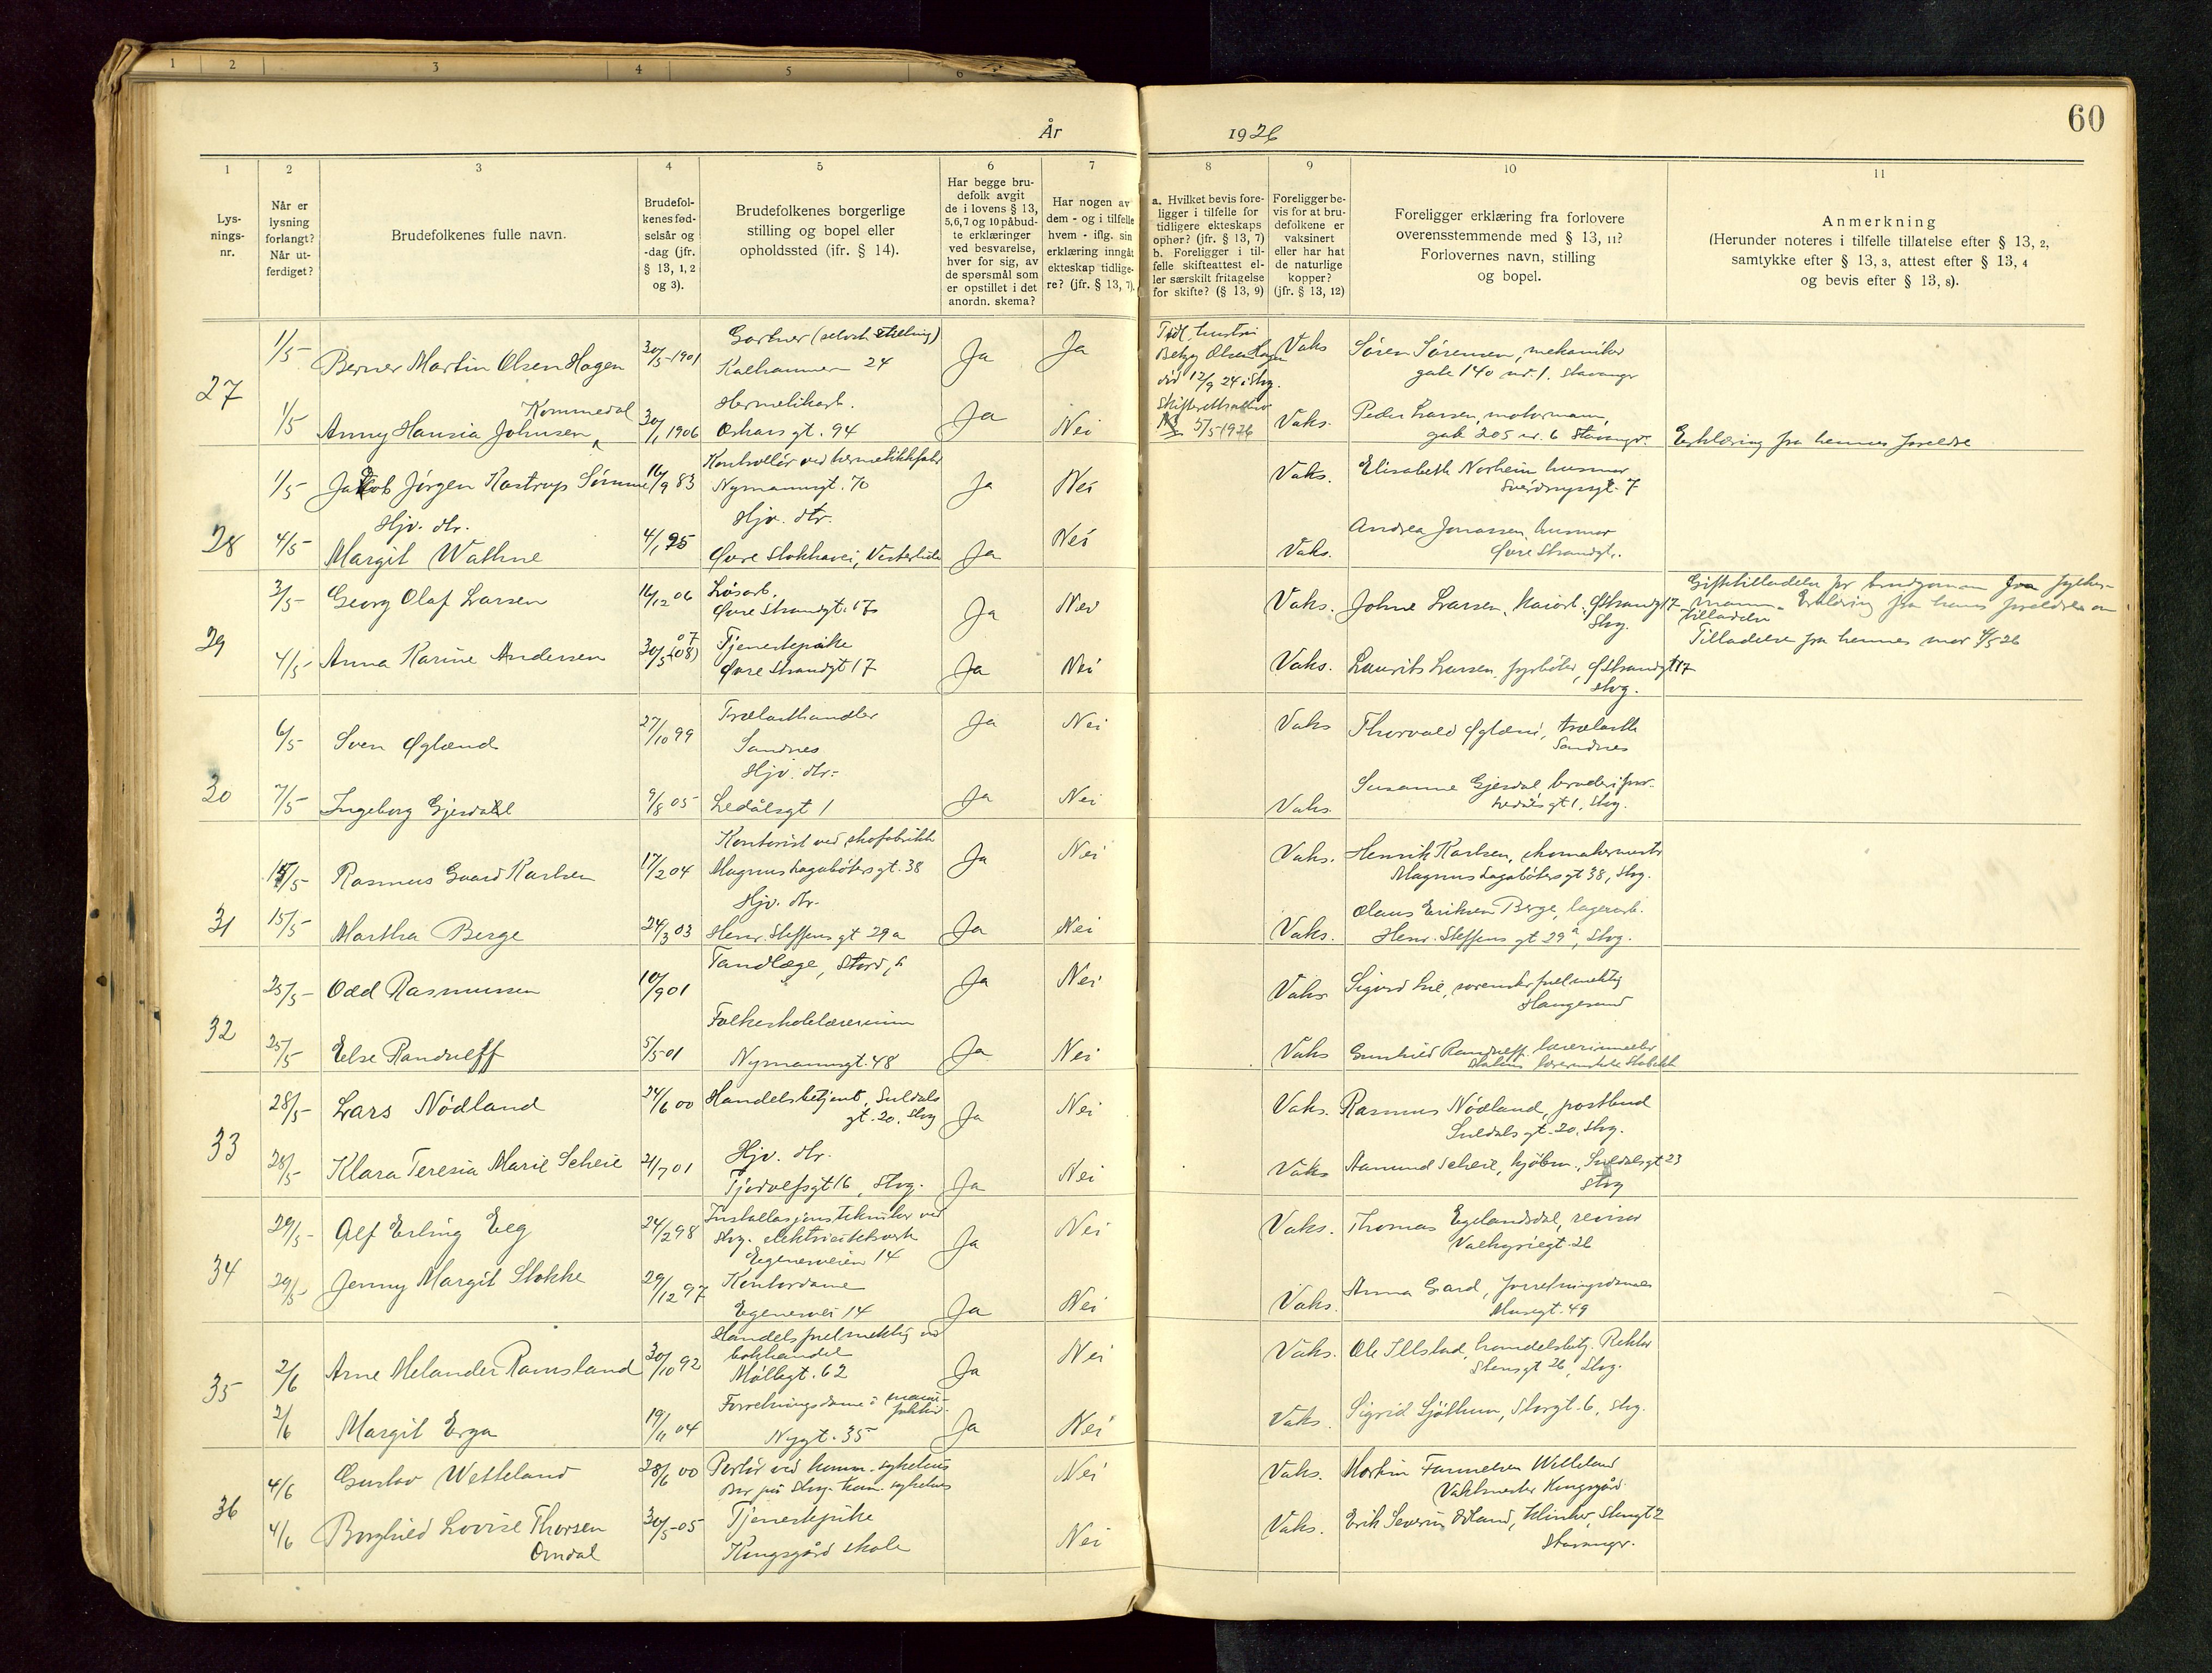 1 2 3 4 5 6
60
År 1926
1 2 3 4 5 6 7 8 9 10 11
Lys-
nings-
nr.
Når er
lysning
forlangt?
Når ut-
ferdiget?
Brudefolkenes fulle navn.
Brudefol-
kenes fød-
selsår og
-dag (jfr.
§ 13, 1, 2
og 3).
Brudefolkenes borgerlige
stilling og bopel eller
opholdssted (jfr. § 14).
Har begge bru-
defolk avgit
de i lovens § 13,
5,6,7 og 10 påbud-
te erklæringer
ved besvarelse,
hver for sig, av
de spørsmål som
er opstillet i det
anordn. skema?
Har nogen av
dem - og i tilfelle
hvem - iflg. sin
erklæring inngåt
ekteskap tidlige-
re? (jfr. § 13, 7).
a. Hvilket bevis fore-
ligger i tilfelle for
tidligere ekteskaps
ophør? (jfr. § 13, 7)
b. Foreligger i til-
felle skifteattest el-
ler særskilt fritagelse
for skifte? (§ 13, 9)
Foreligger be-
vis for at bru-
defolkene er
vaksinert
eller har hat
de naturlige
kopper?
(jfr. § 13, 12)
Foreligger erklæring fra forlovere
overensstemmende med § 13, 11?
Forlovernes navn, stilling
og bopel.
Anmerkning
(Herunder noteres i tilfelle tillatelse efter § 13, 2,
samtykke efter § 13, 3, attest efter § 13, 4
og bevis efter § 13, 8).
27
1/5 Berner Martin Olsen Hagen 30/5-1901 Gartner (selvst. stilling)
Kalhammer 24 Ja Ja
Tidl. hustru
Betzy Olsen Hagen
død 12/9 24 i Stvg.
5/5-1926
Vaks Søren Sørensen, mekaniker
gate 140 nr. 1. Stavanger
1/5 Anny Hansia Johnsen Kommedal 30/1 1906 Hermetikarb.
Oskars gt. 94 Ja Nei Vaks. Peder Larsen, motormann,
gate 205 nr. 6 Stavanger. Erklæring fra hennes foreldre
28
1/5 Jakob Jørgen Kastrup Sømme 16/9 83 Kontrollør ved hermetikkfabr
Nymannsgt. 70 Ja Nei Vaks. Elisabeth Norheim husmor
Sverdrupsgt. 7
4/5 Margit Wathne 4/1 95 Hjv. dtr.
Øvre Stokkavei, Vesterlide Ja Nei Vaks. Andrea Jonassen, husmor
Øvre Strandgt.
29
3/5 Georg Olaf Larsen 16/12 06 Løsarb.
Øvre Strandgt. 17 Ja Nei Vaks. Johne Larsen, Ø Strandgt 17
Stvg.
Giftetilladelse for brudgommen fra fylkes-
mann. Erklæring fra hans foreldre om
tilladelse
Tilladelse fra hennes mor 4/5 26
4/5 Anna Karine Andersen 30/5 07 (08) Tjenestepike
Øvre Strandgt 17 Ja Nei Vaks. Laurits Larsen, fyrbøter, Ø Strandgt 17
Stvg.
30
6/5 Sven Øglænd 27/10 99 Trælasthandler
Sandnes Ja Nei Vaks Thorvald Øglænd, trælasth
Sandnes
7/5 Ingeborg Gjesdal 9/8 05 Hjv. dtr.
Ledålsgt 1 Ja Nei Vaks Susanne Gjesdal,
Ledålsgt 1, Stvg.
31
15/5 Rasmus Gaard Karlsen 17/2 04 Kontorist ved skofabrikk
Magnus Lagabøters gt. 38 Ja Nei Vaks. Henrik Karlsen, skomakermester
Magnus Lagabøters gt 38, Stvg.
15/5 Martha Berge 24/3 03 Hjv. dtr.
Henr. Steffens gt 29a Ja Nei Vaks. Olaus Eriksen Berge, lagerarb.
Henr. Steffens gt 29a, Stvg.
32
25/5 Odd Rasmussen 10/9 01 Tandlæge, Stord, Ja Nei Vaks Sigurd Lie, sorenskr.fuldmektig
Haugesund
25/5 Else Randulff 5/5 01 Folkeskolelærerinne
Nymannsgt. 48 Ja Nei Vaks Gunhild Randulff lærerinne
33
28/5 Lars Nødland 24/6 00 Handelsbetjent, Suldals
gt. 20, Stvg Ja Nei Vaks. Rasmus Nødland, postbud
Suldals gt. 20, Stvg.
28/5 Klara Teresia Marie Scheie 21/7 01 Hjv. dtr.
Tjodolfsgt 16, Stvg. Ja Nei Vaks Aamund Scheie, kjøbm., Suldalsgt 23
Stvg
34
29/5 Alf Erling Eeg 24/2 98 Installasjonstekniker ved
Stvg. elektrisitetsverk
Egenesveien 14 Ja Nei Vaks. Thomas Egelandsdal, revisor
Valkyriegt 26
29/5 Jenny Margit Stokke 29/12 97 Kontordame
Egenesvei 14 Ja Nei Vaks. Anna Gard, forretningsdame
Musegt. 49
35
2/6 Arne Melander Ramsland 30/10 92 Handelsfuldmektig ved
bokhandel
Møllegt. 62 Ja Nei Vaks. Ole Illstad, handelsbetj. Rektor
Stensgt 26, Stvg.
2/6 Margit Erga 19/11 04 Forretningsdame i manu-
faktur.
Nygt. 35 Ja Nei Vaks. Sigrid Sjøthun, Storgt. 6, Stvg.
36
4/6 Gustav Wetteland 28/6 00 Portør ved komm. sykehus
Bor på Stvg. kom. sykehus Nei Vaks. Martin Wetteland
Vaktmester Kongsgård.
4/6 Borghild Lovise Thorsen
Omdal 30/5-05 Tjenestepike
Kongsgård skole Nei Vaks. Erik Severin
Stavanger.